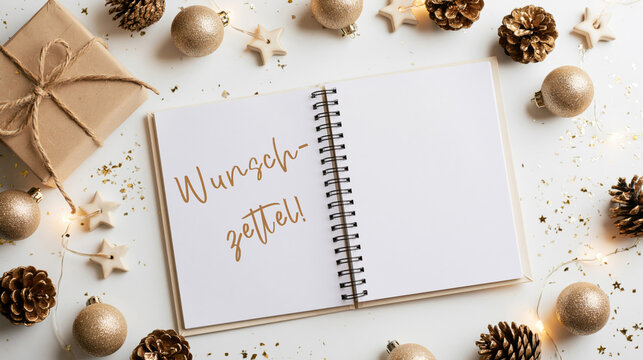 Wunsch-
zettel!